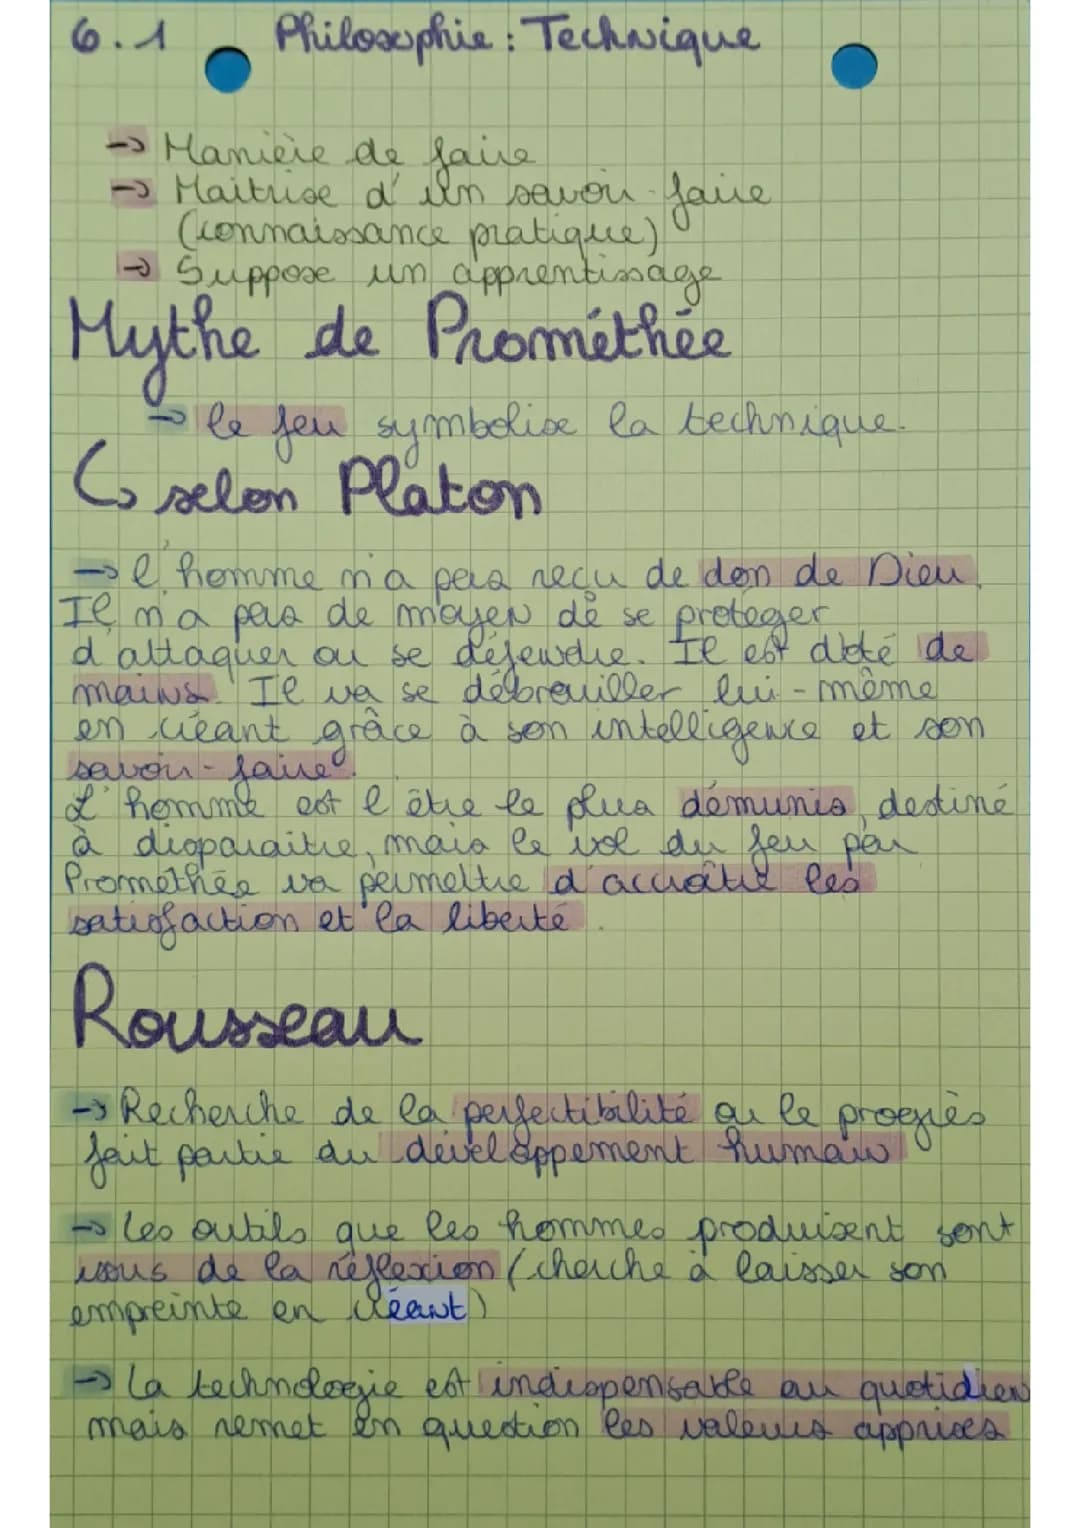 6.1 Philosophie : Technique
→ Manière de faire
→ Maitrise d'un savoir-faire
(connaissance pratique)
→ Suppose un apprentissage
Mythe de Prométhée
→ le feu symbolise la technique.
↳ selon Platon
→ l'homme n'a pas reçu de don de Dieu.
Il n'a pas de moyen de se protéger
d'attaquer ou se défendre. Il est doté de
mains. Il va se débrouiller lui-même
en créant grâce à son intelligence et son
savoir-faire.
L'homme est l'être le plus démunis, destiné
à disparaitre, mais le vol du feu par
Prométhée va permettre d'accroître les
satisfaction et la liberté.
Rousseau
→ Recherche de la perfectibilité ou le progrès
fait partie du développement humain
→ Les outils que les hommes produisent sont
issus de la réflexion (cherche à laisser son
empreinte en créant)
→ La technologie est indispensable au quotidien
mais remet en question les valeurs apprises